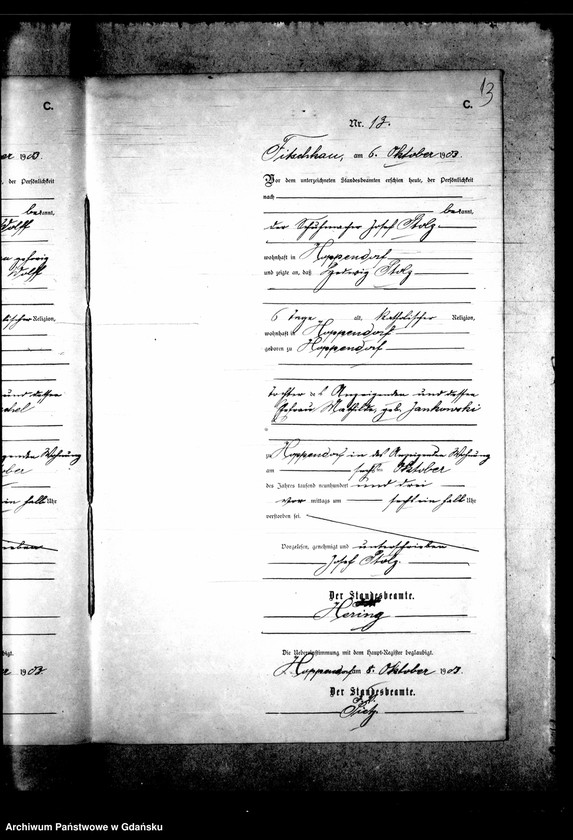 C.
er 1903.
, der Persönlichkeit
bekannt,
Wolff
Wolff
Religion,
und dessen
Wohnung
ein halb Uhr
1903.
13
C.
Nr. 13.
am 6. Oktober 1903.
Vor dem unterzeichneten Standesbeamten erschien heute, der Persönlichkeit
nach
bekannt,
der Schuhmacher Josef Stolz
wohnhaft in Hoppendorf
und zeigte an, daß Hedwig Stolz
6 Tage alt, katholischer Religion,
wohnhaft in Hoppendorf
geboren zu Hoppendorf
Tochter des Anzeigenden und dessen
Ehefrau Mathilde, geb. Jankowski
zu Hoppendorf in des Anzeigenden Wohnung
am sechsten Oktober
des Jahres tausend neunhundert und drei
Vor mittags um sechs ein halb Uhr
verstorben sei.
Vorgelesen, genehmigt und unterschrieben
Josef Stolz.
Der Standesbeamte.
Hering
Die Uebereinstimmung mit dem Haupt-Register beglaubigt.
Hoppendorf am Oktober 1903.
Der Standesbeamte.
Archiwum Państwowe w Gdańsku